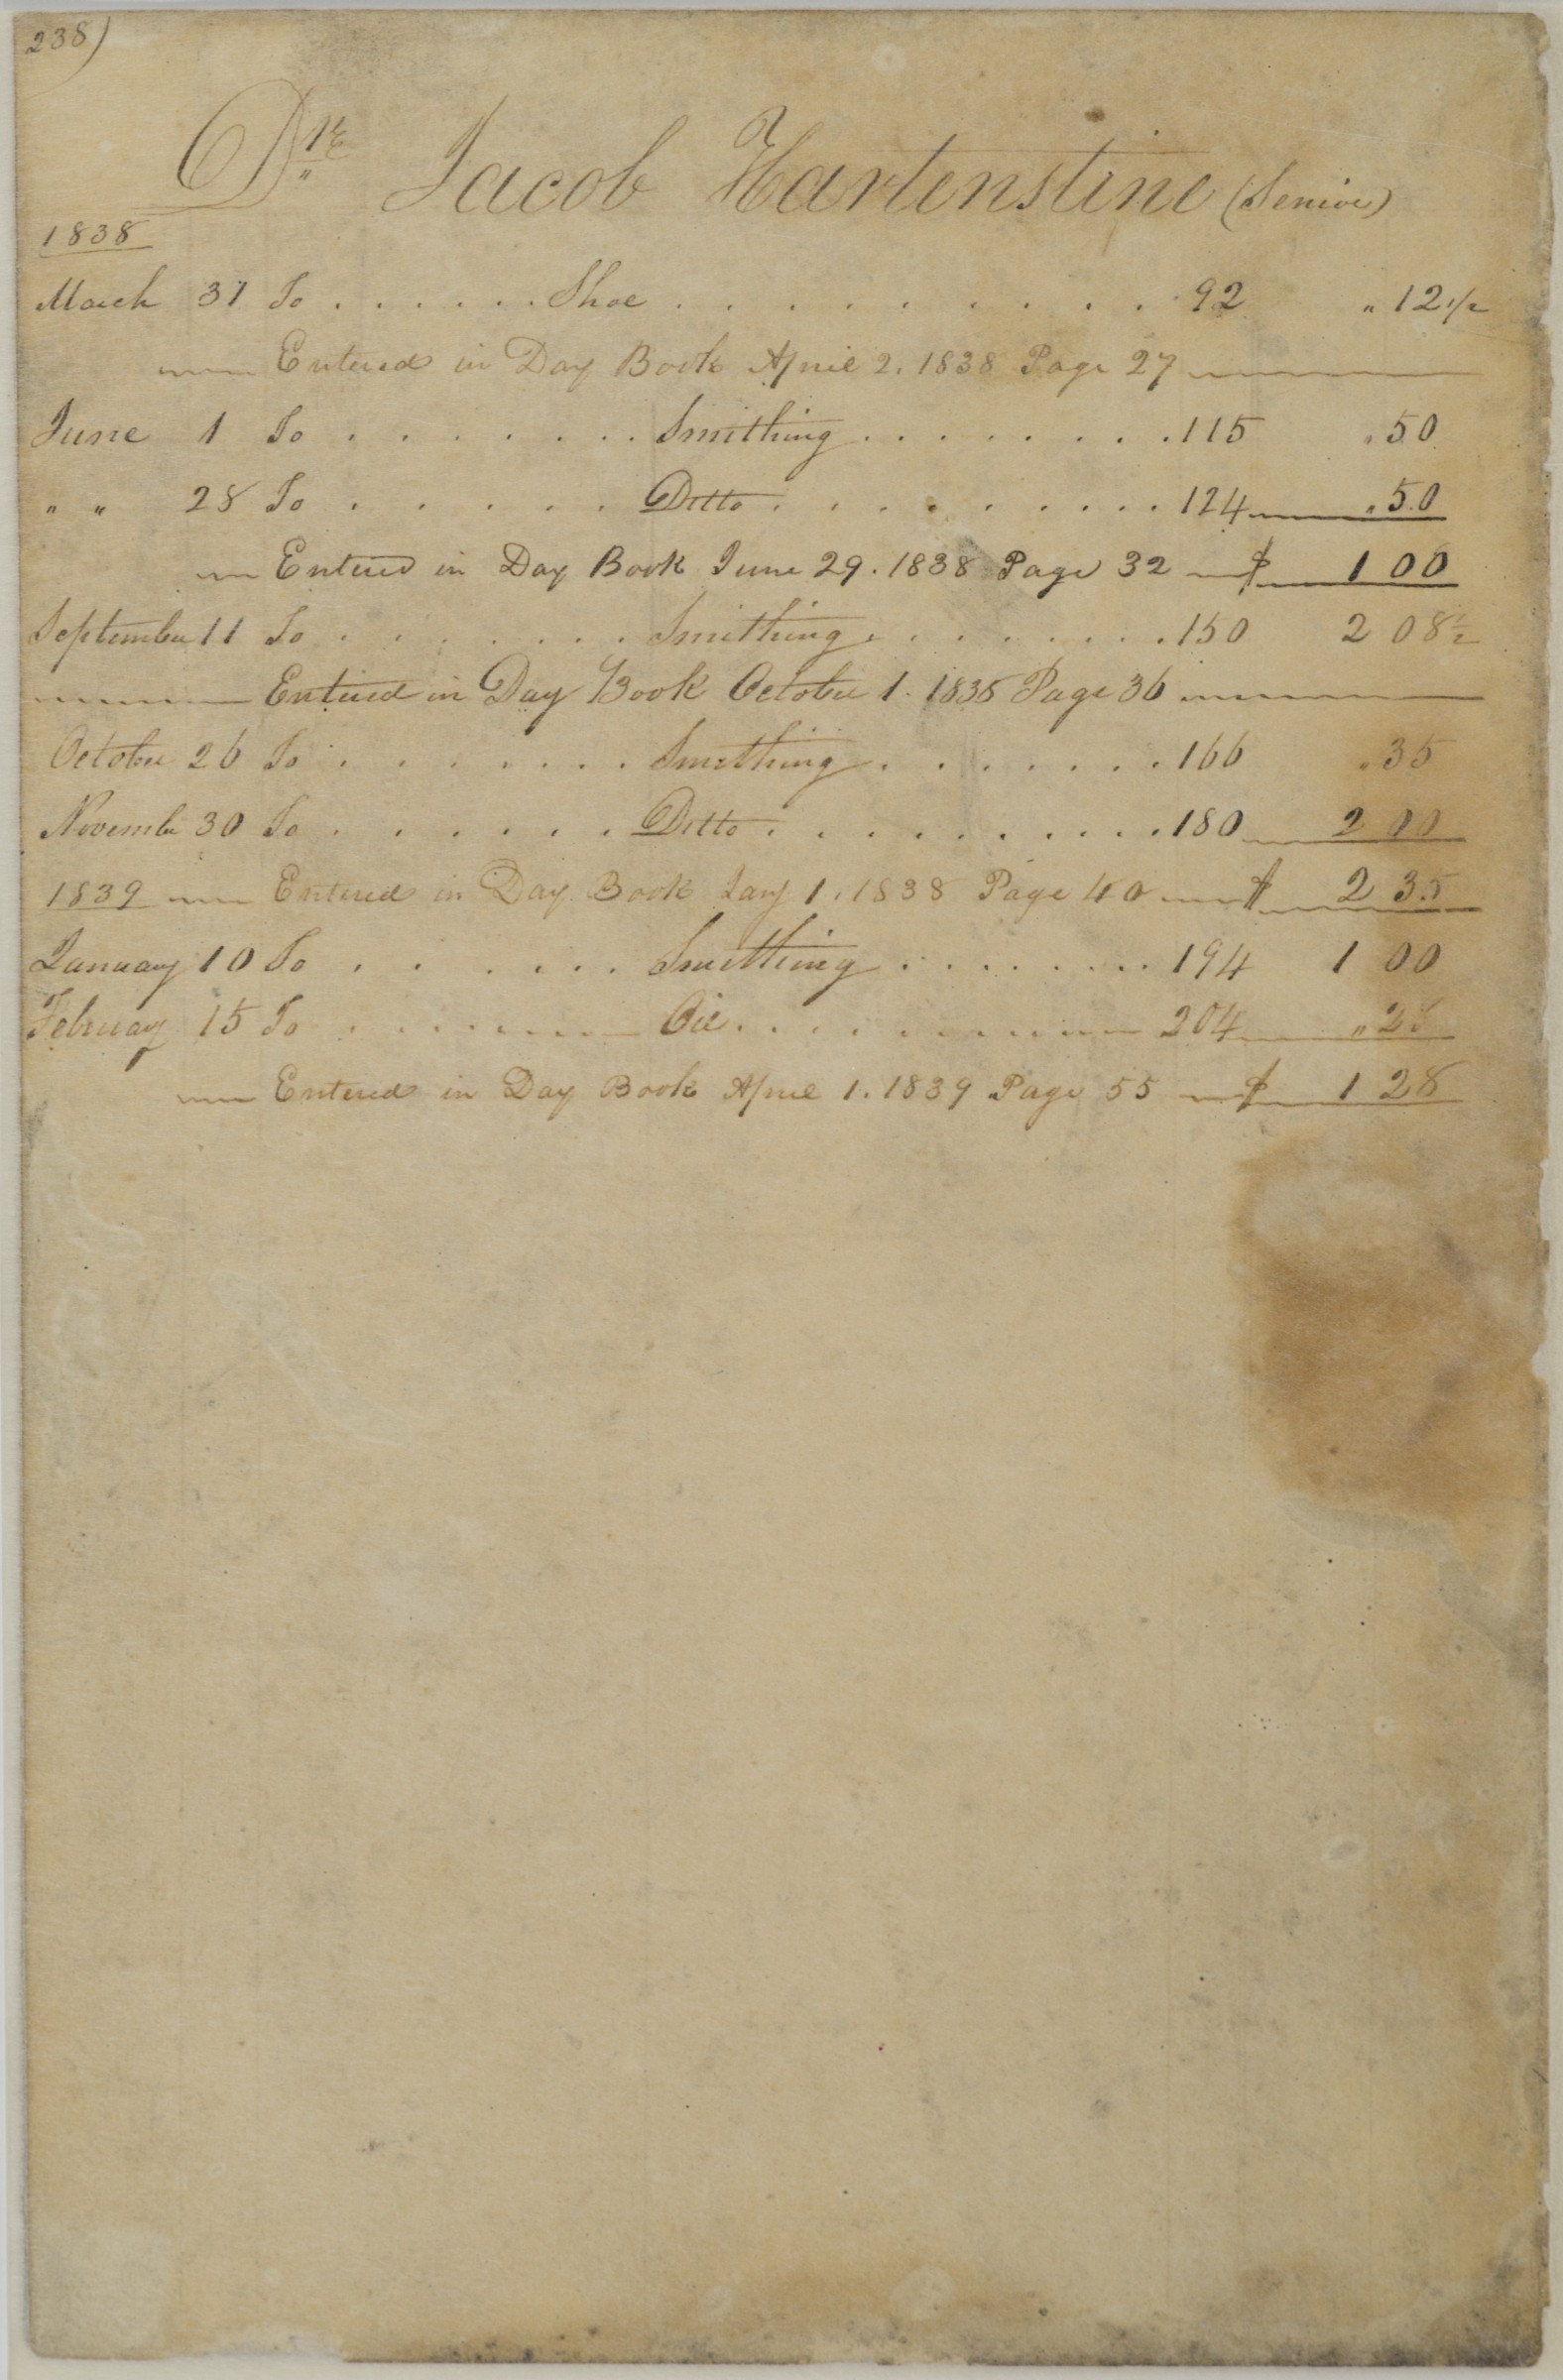 238)
Dr. Jacob Hartenstine (Senior)
1838
March 31 To . . . . . . Shoe . . . . . . . . . . 92 " 12 1/2
Entered in Day Book April 2. 1838 Page 27
June 1 To . . . . . . . Smithing . . . . . . . . 115 " 50
" " 28 To . . . . . . Ditto . . . . . . . . . . 124 " 50
Entered in Day Book June 29. 1838 Page 32 $ 1 00
September 11 To . . . . . . . Smithing . . . . . . . 150 2 08 1/2
Entered in Day Book October 1. 1838 Page 36
October 26 To . . . . . . . Smithing . . . . . . . 166 " 35
Novembr 30 To . . . . . . Ditto . . . . . . . . . . 180 2 00
1839 Entered in Day Book Jany 1. 1838 Page 40 $ 2 35
January 10 To . . . . . . Smithing . . . . . . . . 194 1 00
February 15 To . . . . . . Oil . . . . . . . . 204 " 28
Entered in Day Book April 1. 1839 Page 55 $ 1 28